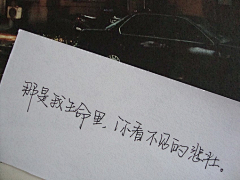 那是我生命里，你看不见的悲壮。